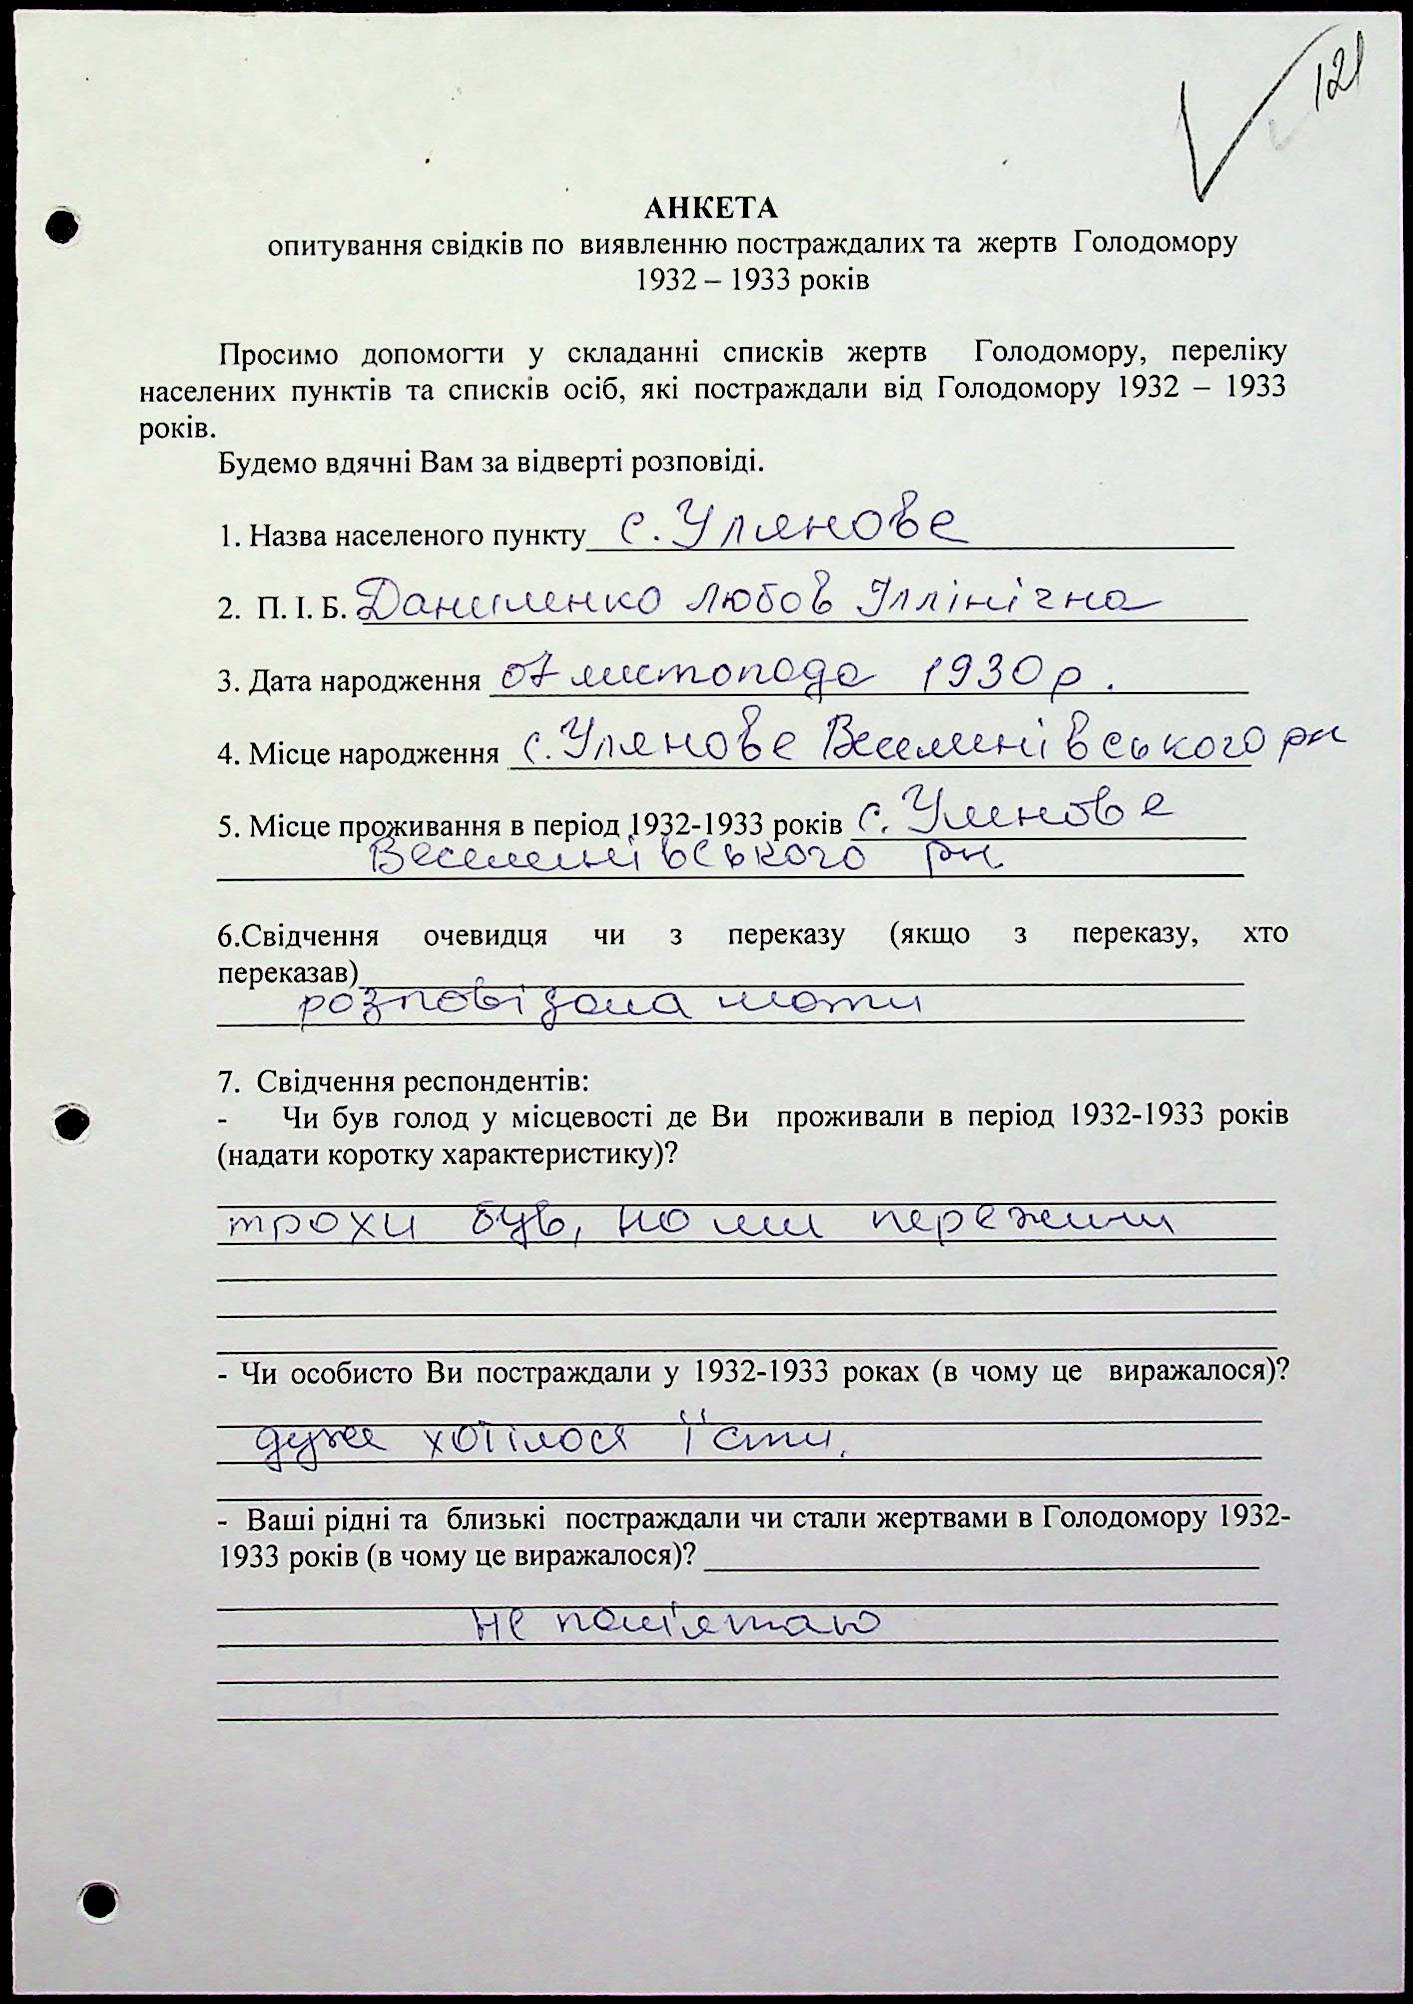 121
АНКЕТА
опитування свідків по виявленню постраждалих та жертв Голодомору
1932 – 1933 років
Просимо допомогти у складанні списків жертв Голодомору, переліку
населених пунктів та списків осіб, які постраждали від Голодомору 1932 – 1933
років.
Будемо вдячні Вам за відверті розповіді.
1. Назва населеного пункту с. Улянове
2. П. І. Б. Даниленко Любов Іллінічна
3. Дата народження 07 листопада 1930 р.
4. Місце народження с. Улянове Веселинівського рн
5. Місце проживання в період 1932-1933 років с. Улянове
Веселинівського рн.
6.Свідчення очевидця чи з переказу (якщо з переказу, хто
переказав)
розповідала мати
7. Свідчення респондентів:
- Чи був голод у місцевості де Ви проживали в період 1932-1933 років
(надати коротку характеристику)?
трохи був, но ми пережили
- Чи особисто Ви постраждали у 1932-1933 роках (в чому це виражалося)?
дуже хотілося їсти.
- Ваші рідні та близькі постраждали чи стали жертвами в Голодомору 1932-
1933 років (в чому це виражалося)?
не пам'ятаю